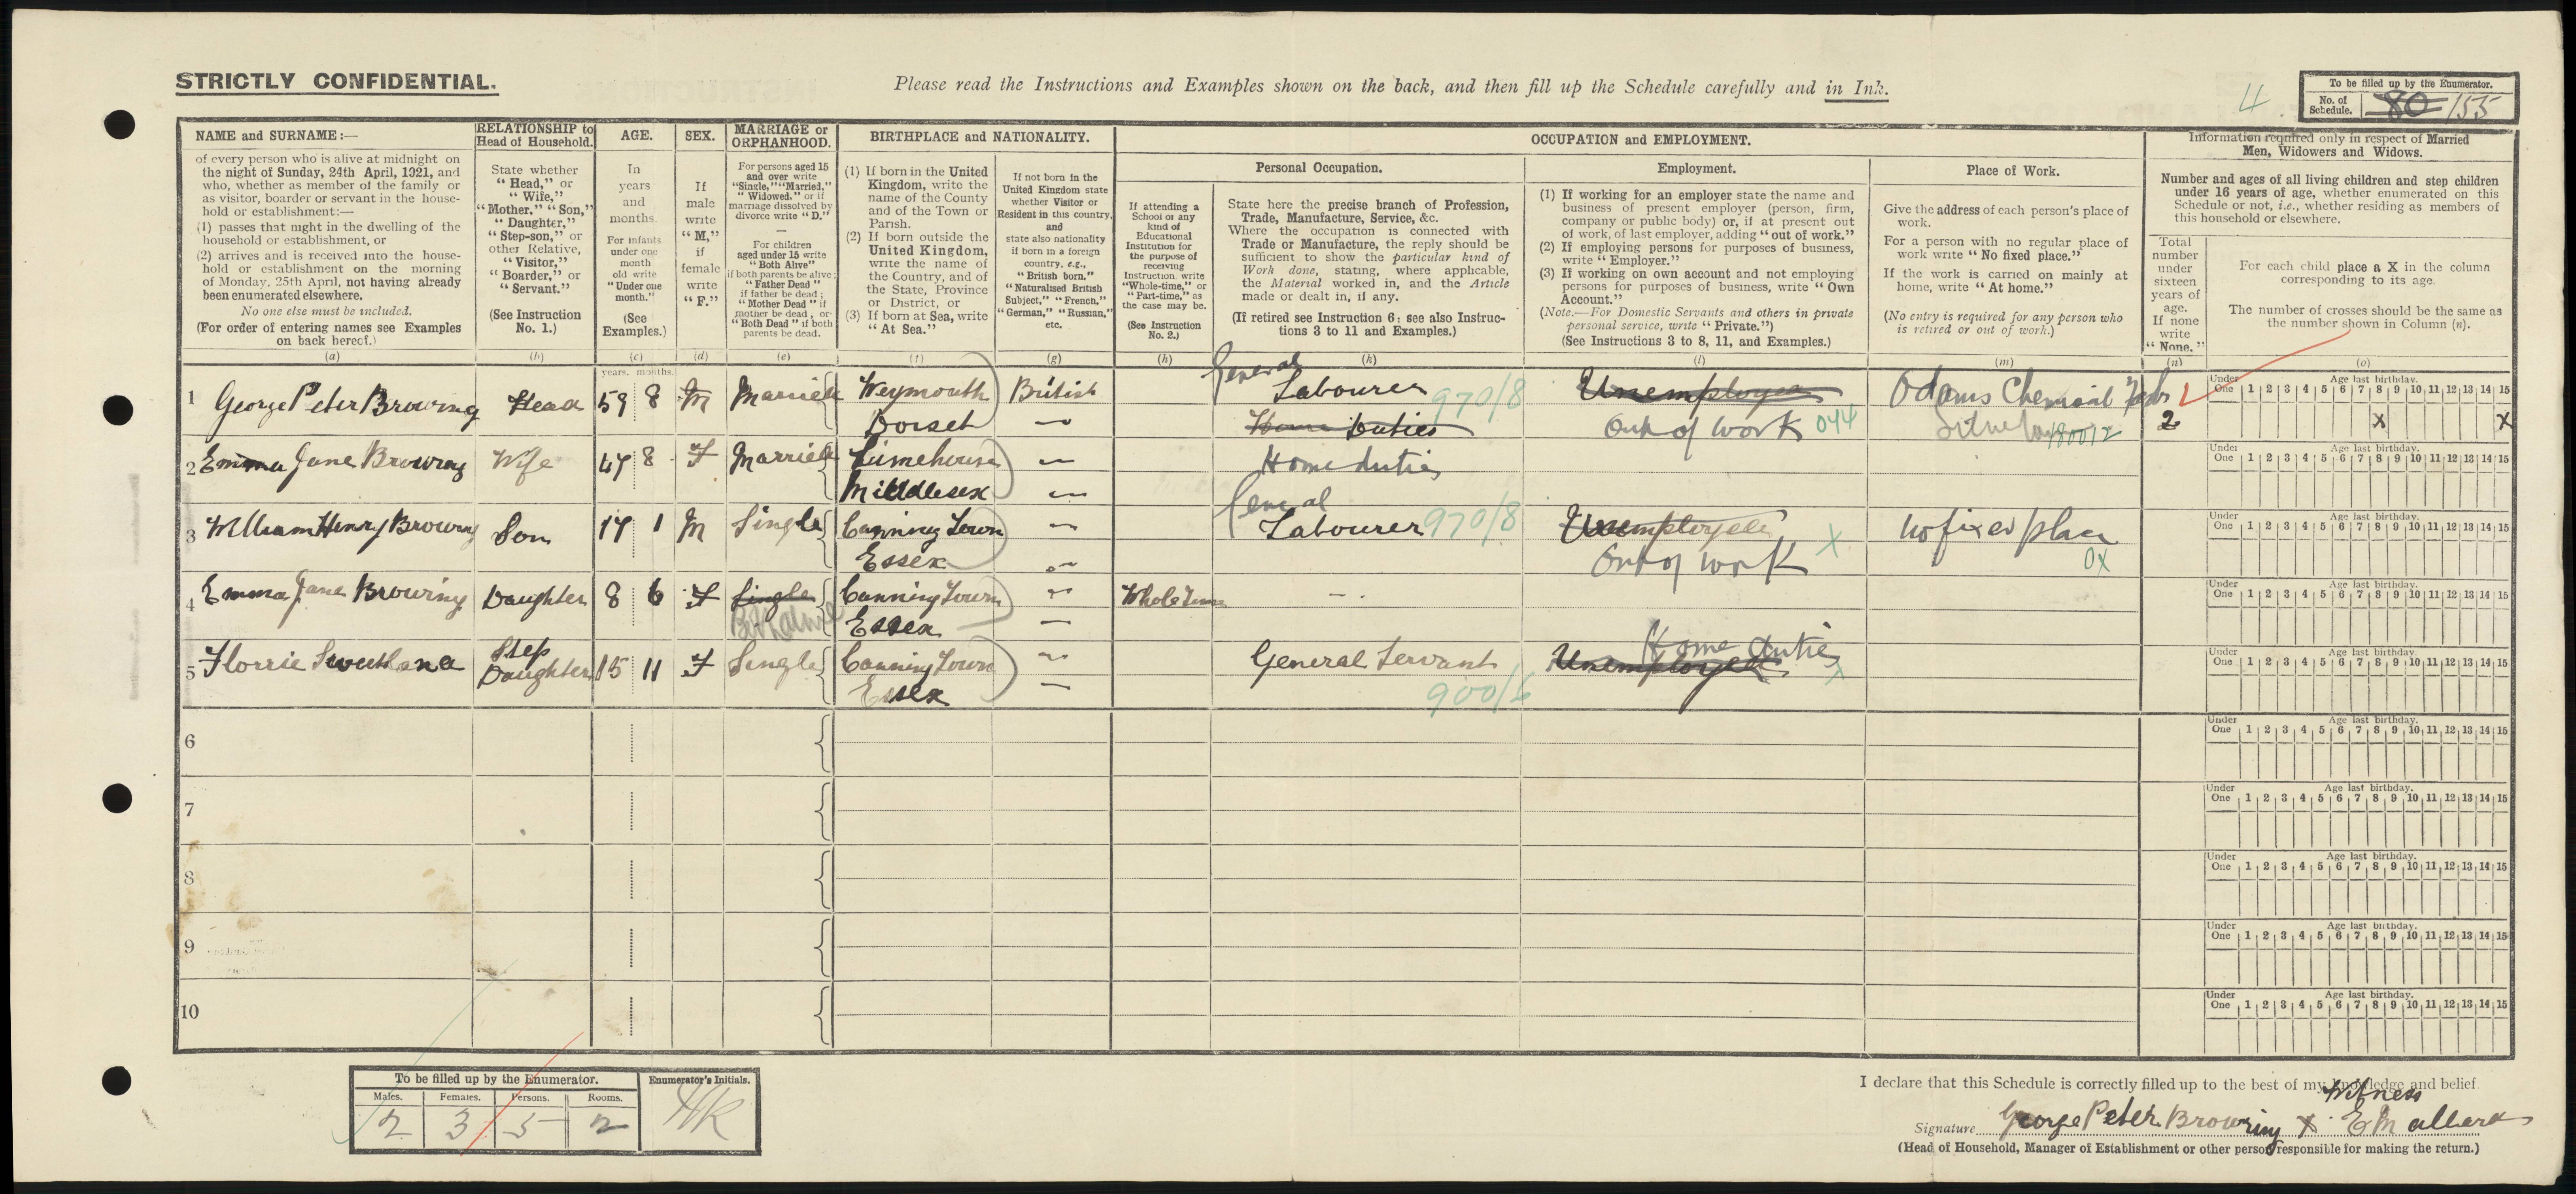 STRICTLY CONFIDENTIAL.
Please read the Instructions and Examples shown on the back, and then fill up the Schedule carefully and in Ink.
4
To be filled up by the Enumerator.
No. of Schedule. 80 155
NAME and SURNAME:—
of every person who is alive at midnight on
the night of Sunday, 24th April, 1921, and
who, whether as member of the family or
as visitor, boarder or servant in the house-
hold or establishment:—
(1) passes that night in the dwelling of the
household or establishment, or
(2) arrives and is received into the house-
hold or establishment on the morning
of Monday, 25th April, not having already
been enumerated elsewhere.
No one else must be included.
(For order of entering names see Examples
on back hereof.)
(a)
RELATIONSHIP to
Head of Household.
State whether
"Head," or
"Wife,"
"Mother," "Son,"
"Daughter,"
"Step-son," or
other Relative,
"Visitor,"
"Boarder," or
"Servant."
(See Instruction
No. 1.)
(b)
AGE.
In
years
and
months.
For infants
under one
month
old write
"Under one
month."
(See
Examples.)
(c)
years. months.
SEX.
If
male
write
"M,"
if
female
write
"F."
(d)
MARRIAGE or
ORPHANHOOD.
For persons aged 15
and over write
"Single," "Married,"
"Widowed," or if
marriage dissolved by
divorce write "D."
—
For children
aged under 15 write
"Both Alive"
if both parents be alive;
"Father Dead"
if father be dead;
"Mother Dead" if
mother be dead, or
"Both Dead" if both
parents be dead.
(e)
BIRTHPLACE and NATIONALITY.
(1) If born in the United
Kingdom, write the
name of the County
and of the Town or
Parish.
(2) If born outside the
United Kingdom,
write the name of
the Country, and of
the State, Province
or District, or
(3) If born at Sea, write
"At Sea."
(f)
If not born in the
United Kingdom state
whether Visitor or
Resident in this country,
and
state also nationality
if born in a foreign
country, e.g.,
"British born,"
"Naturalised British
Subject," "French,"
"German," "Russian,"
etc.
(g)
OCCUPATION and EMPLOYMENT.
If attending a
School or any
kind of
Educational
Institution for
the purpose of
receiving
Instruction write
"Whole-time," or
"Part-time," as
the case may be.
(See Instruction
No. 2.)
(h)
Personal Occupation.
State here the precise branch of Profession,
Trade, Manufacture, Service, &c.
Where the occupation is connected with
Trade or Manufacture, the reply should be
sufficient to show the particular kind of
Work done, stating, where applicable,
the Material worked in, and the Article
made or dealt in, if any.
(If retired see Instruction 6: see also Instruc-
tions 3 to 11 and Examples.)
(k)
Employment.
(1) If working for an employer state the name and
business of present employer (person, firm,
company or public body) or, if at present out
of work, of last employer, adding "out of work."
(2) If employing persons for purposes of business,
write "Employer."
(3) If working on own account and not employing
persons for purposes of business, write "Own
Account."
(Note.—For Domestic Servants and others in private
personal service, write "Private.")
(See Instructions 3 to 8, 11, and Examples.)
(l)
Place of Work.
Give the address of each person's place of
work.
For a person with no regular place of
work write "No fixed place."
If the work is carried on mainly at
home, write "At home."
(No entry is required for any person who
is retired or out of work.)
(m)
Information required only in respect of Married
Men, Widowers and Widows.
Number and ages of all living children and step children
under 16 years of age, whether enumerated on this
Schedule or not, i.e., whether residing as members of
this household or elsewhere.
Total
number
under
sixteen
years of
age.
If none
write
"None."
(n)
For each child place a X in the column
corresponding to its age.
The number of crosses should be the same as
the number shown in Column (n).
(o)
Under One Age last birthday. 1 2 3 4 5 6 7 8 9 10 11 12 13 14 15
1 George Peter Browing Head 59 8 M Married Weymouth British General Labourer 970/8 Unemployed Odams Chemical
Dorset — Home Duties Out of work 044 2 X X
2 Emma Jane Browing Wife 47 8 F Married Limehouse — Home duties
Middlesex —
Under One Age last birthday. 1 2 3 4 5 6 7 8 9 10 11 12 13 14 15
3 William Henry Browing Son 17 1 M Single Canning Town — General Labourer 970/8 Unemployed X No fixed place
Essex — Out of work 0X
Under One Age last birthday. 1 2 3 4 5 6 7 8 9 10 11 12 13 14 15
4 Emma Jane Browing Daughter 8 6 F Single Canning Town — Whole Time —
Both alive Essex —
Under One Age last birthday. 1 2 3 4 5 6 7 8 9 10 11 12 13 14 15
5 Florrie Sweetland Step Daughter 15 11 F Single Canning Town — General Servant Unemployed Home duties X
Essex — 900/6
Under One Age last birthday. 1 2 3 4 5 6 7 8 9 10 11 12 13 14 15
6
Under One Age last birthday. 1 2 3 4 5 6 7 8 9 10 11 12 13 14 15
7
Under One Age last birthday. 1 2 3 4 5 6 7 8 9 10 11 12 13 14 15
8
Under One Age last birthday. 1 2 3 4 5 6 7 8 9 10 11 12 13 14 15
9
Under One Age last birthday. 1 2 3 4 5 6 7 8 9 10 11 12 13 14 15
10
Under One Age last birthday. 1 2 3 4 5 6 7 8 9 10 11 12 13 14 15
To be filled up by the Enumerator.
Males. Females. Persons. Rooms.
2 3 5 2
Enumerator's Initials.
HK
I declare that this Schedule is correctly filled up to the best of my knowledge and belief
Witness
Signature George Peter Browing X
(Head of Household, Manager of Establishment or other person responsible for making the return.)